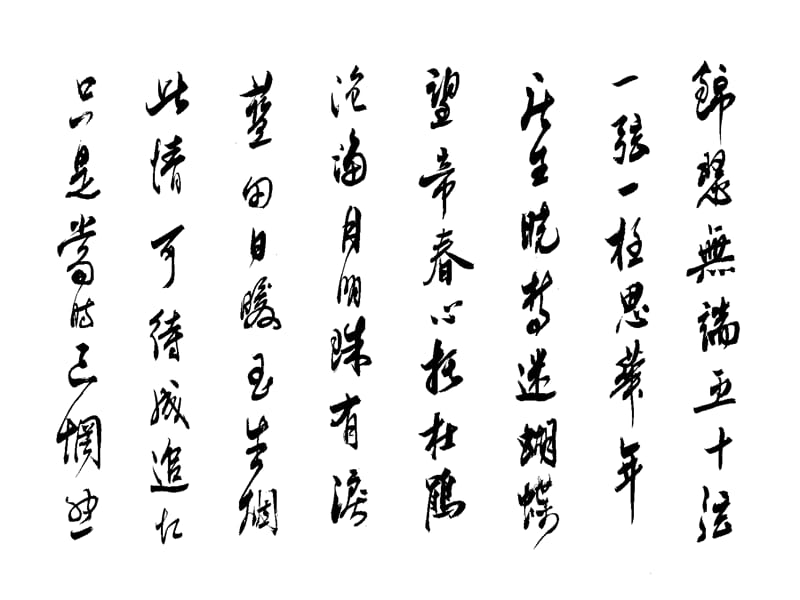 錦瑟無端五十弦
一弦一柱思華年
庄生曉梦迷蝴蝶
望帝春心托杜鵑
滄海月明珠有淚
藍田日暖玉生烟
此情可待成追忆
只是當时已惘然